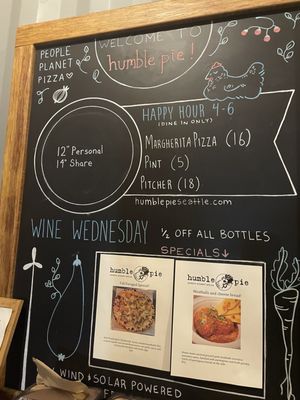 WELCOME TO
humble pie!
PEOPLE
PLANET
PIZZA
HAPPY HOUR 4-6
(DINE IN ONLY)
12" Personal
19" Share
MARGHERITA PIZZA (16)
PINT (5)
PITCHER (18)
humblepieseattle.com
WINE WEDNESDAY ½ OFF ALL BOTTLES
SPECIALS
humble pie
humble pie
Meatballs and cheese bread!
WIND & SOLAR POWERED